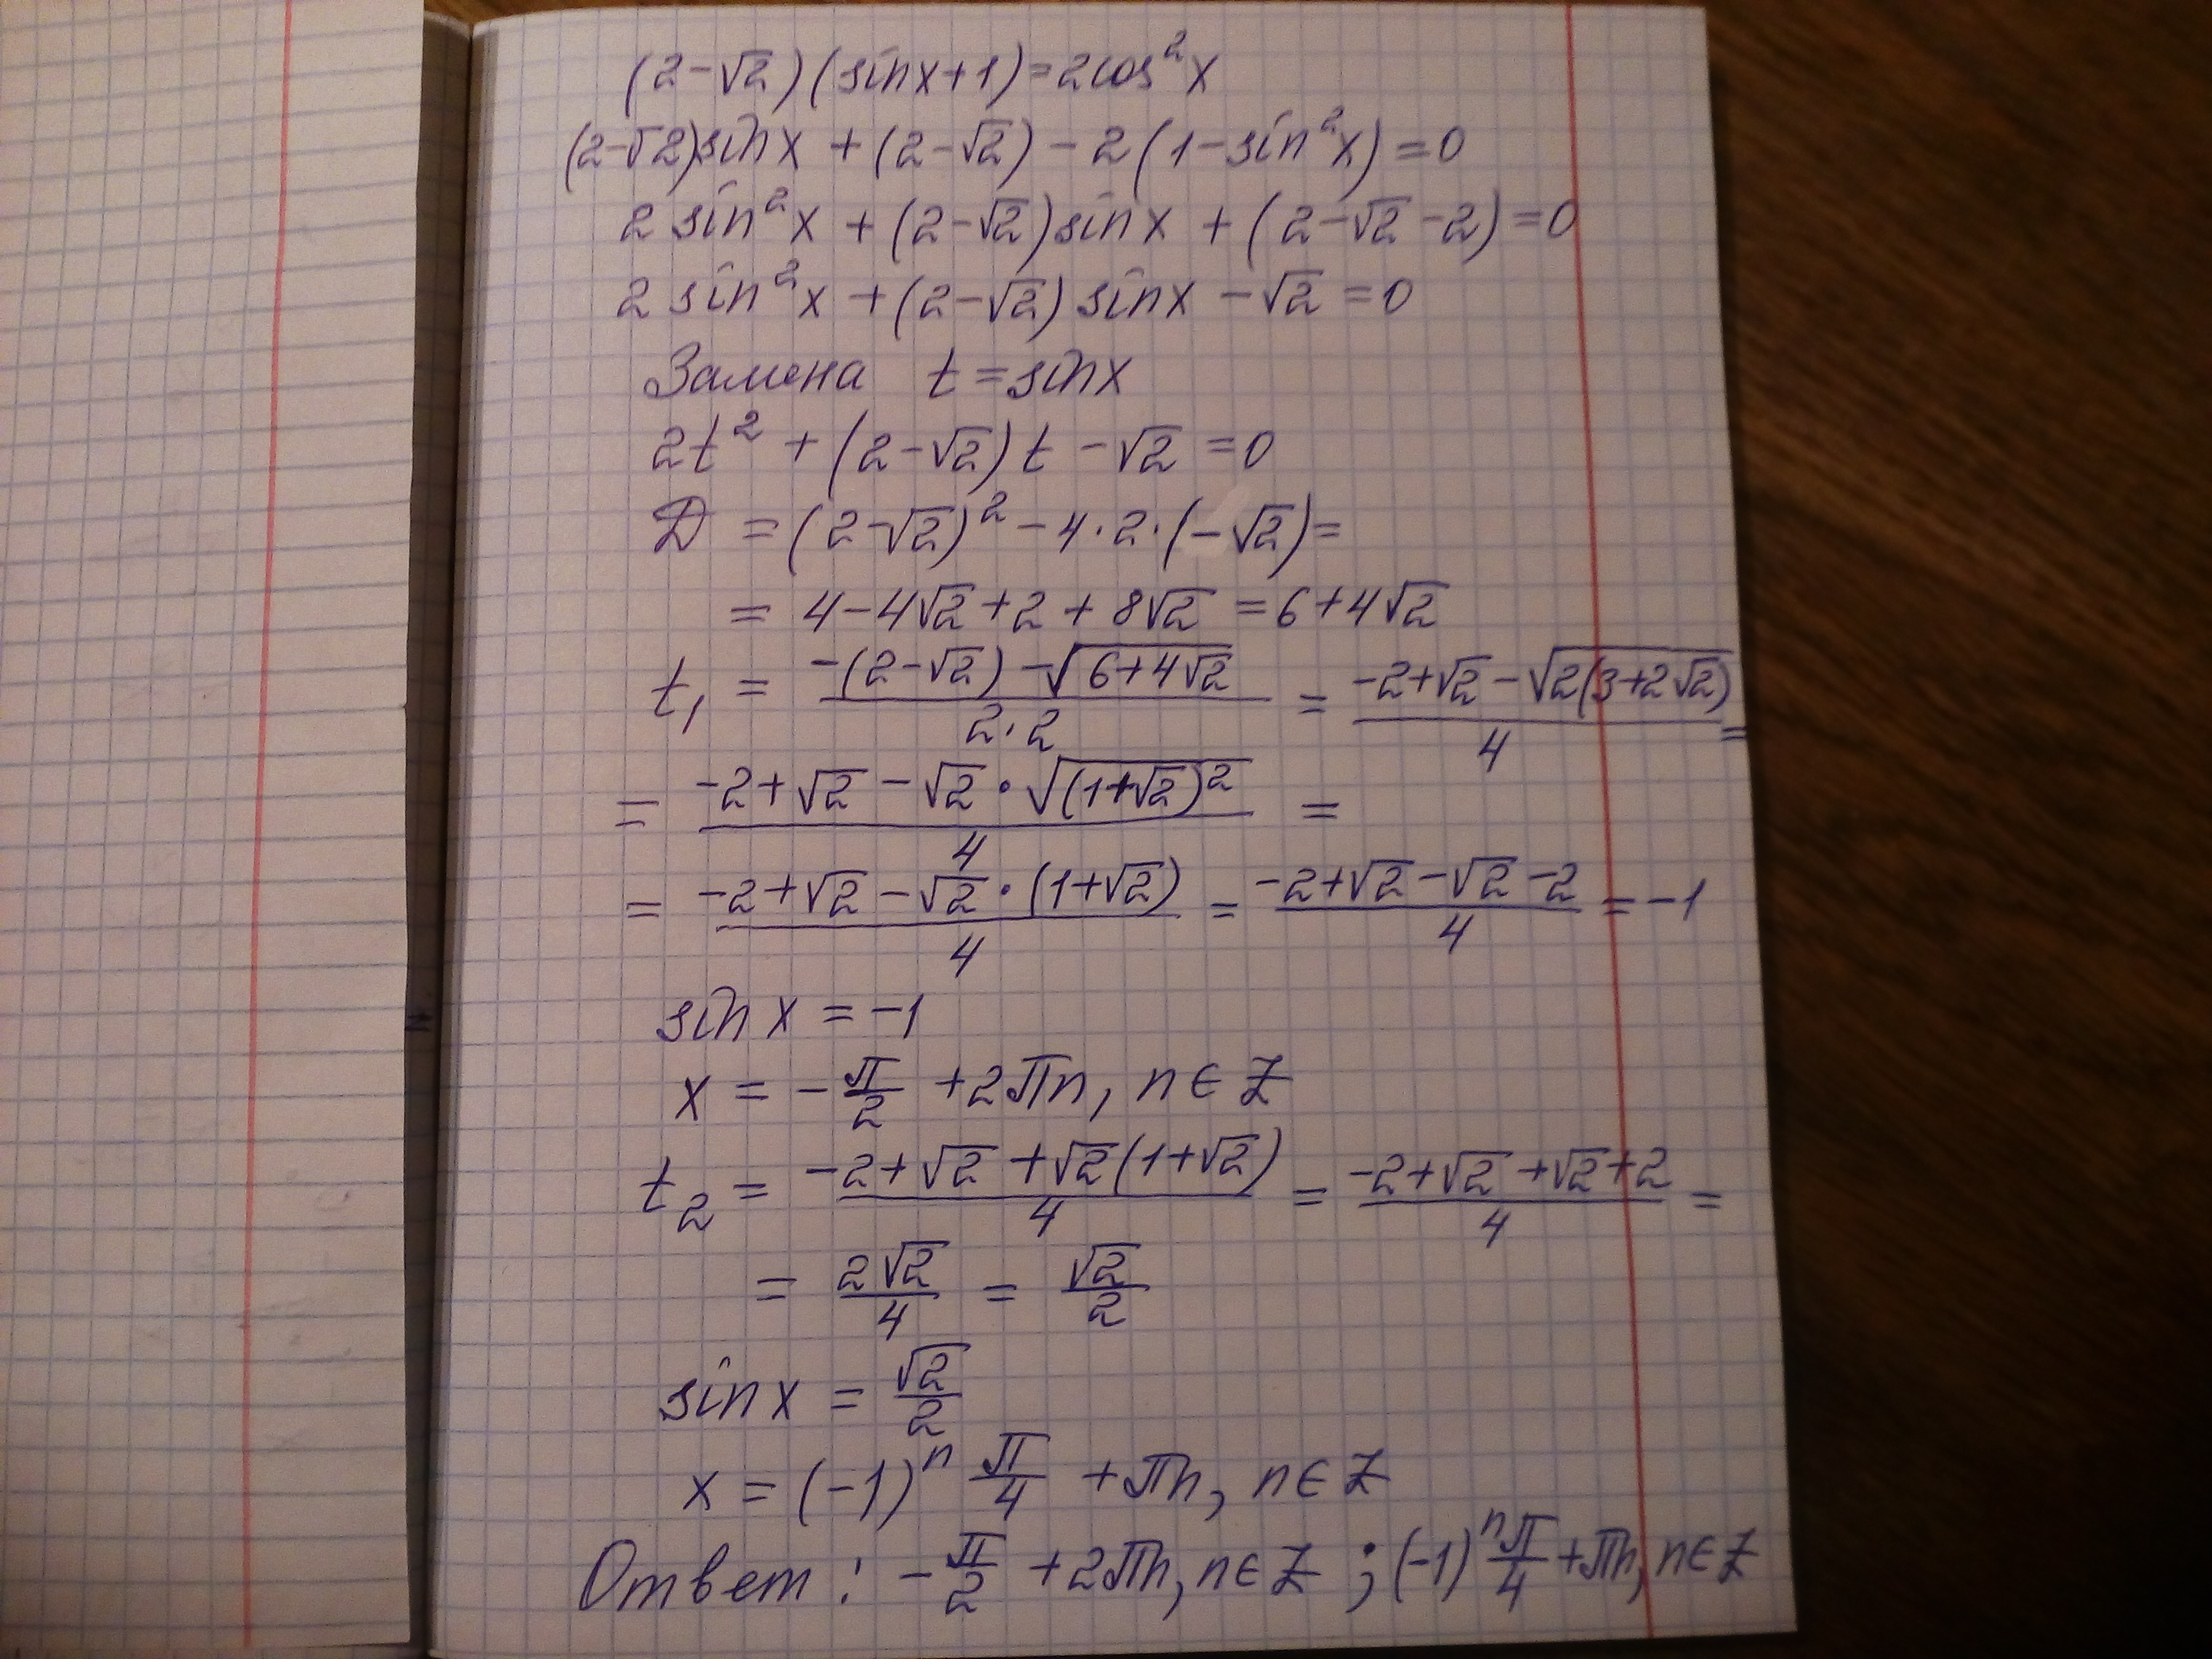 (2-√2)(sinx+1)=2cos²x
(2-√2)sinx+(2-√2)-2(1-sin²x)=0
2sin²x+(2-√2)sinx+(2-√2-2)=0
2sin²x+(2-√2)sinx-√2=0
Замена t=sinx
2t²+(2-√2)t-√2=0
D=(2-√2)²-4·2·(-√2)=
=4-4√2+2+8√2=6+4√2
t₁=(-(2-√2)-√(6+4√2))/(2·2)=(-2+√2-√(2(3+2√2)))/4=
=(-2+√2-√2·√((1+√2)²))/4=
=(-2+√2-√2·(1+√2))/4=(-2+√2-√2-2)/4=-1
sinx=-1
x=-π/2+2πn, n∈Z
t₂=(-2+√2+√2(1+√2))/4=(-2+√2+√2+2)/4=
=2√2/4=√2/2
sinx=√2/2
x=(-1)ⁿ π/4+πn, n∈Z
Ответ: -π/2+2πn, n∈Z; (-1)ⁿ π/4+πn, n∈Z